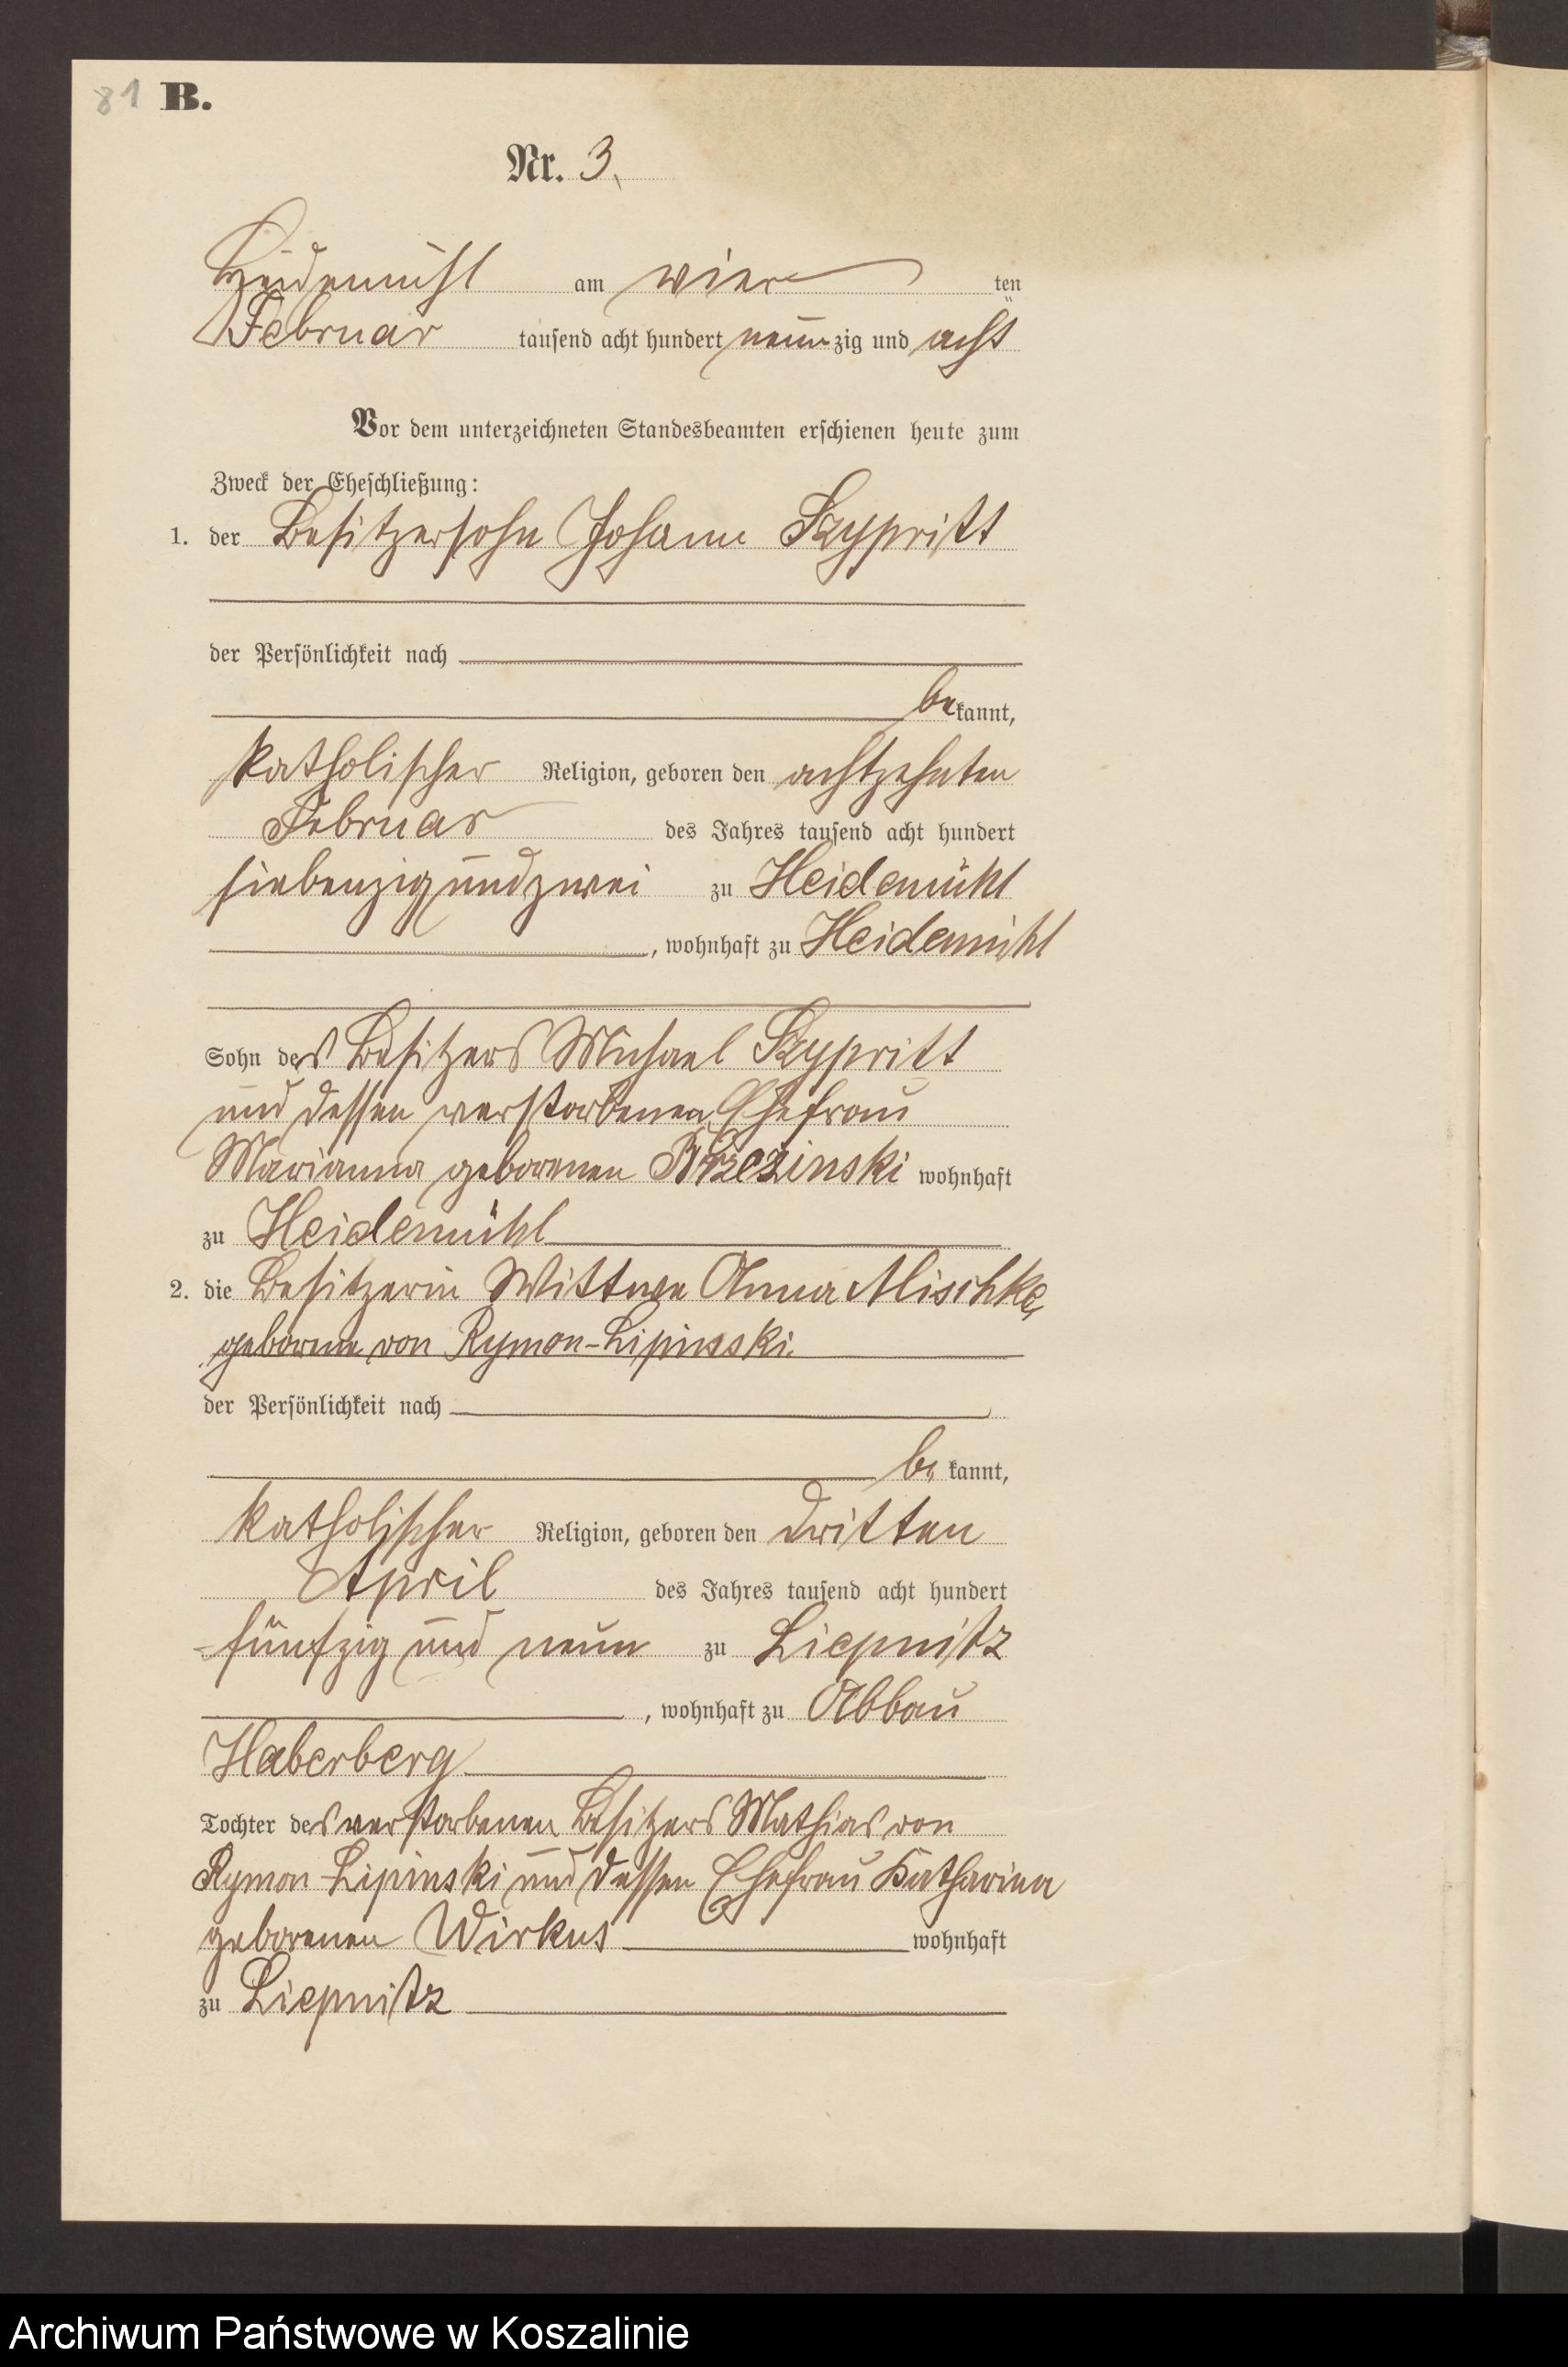 81 B.
Nr. 3.
Heidemühl am vier ten
Februar tausend acht hundert neun zig und acht
Vor dem unterzeichneten Standesbeamten erschienen heute zum
Zweck der Eheschließung:
1. der Besitzersohn Johann Szypritt
der Persönlichkeit nach
be kannt,
katholischer Religion, geboren den achtzehnten
Februar des Jahres tausend acht hundert
siebenzig und zwei zu Heidemühl
, wohnhaft zu Heidemühl
Sohn des Besitzers Michael Szypritt
und dessen verstorbenen Ehefrau
Marianna geborenen Brzezinski wohnhaft
zu Heidemühl
2. die Besitzerin Wittwe Anna Mischke,
geborene von Rymon-Lipinski.
der Persönlichkeit nach
be kannt,
katholischer Religion, geboren den dritten
April des Jahres tausend acht hundert
fünfzig und neun zu Liepnitz
, wohnhaft zu Abbau
Haberberg
Tochter des verstorbenen Besitzers Mathias von
Rymon-Lipinski und dessen Ehefrau Katharina
geborenen Wirkus wohnhaft
zu Liepnitz
Archiwum Państwowe w Koszalinie